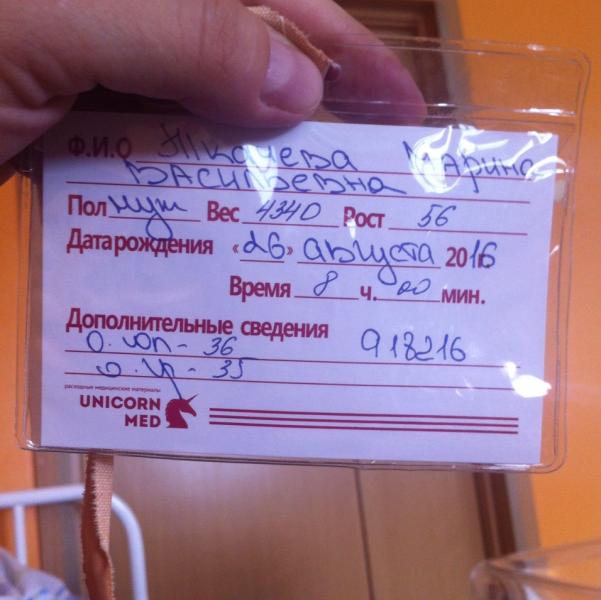 Ф.И.О Ткачева Марина
Васильевна
Пол муж Вес 4340 Рост 56
Дата рождения «26» августа 2016
Время 8 ч. 00 мин.
Дополнительные сведения 918216
о. гол - 36
о. гр - 35
расходные медицинские материалы
UNICORN
MED